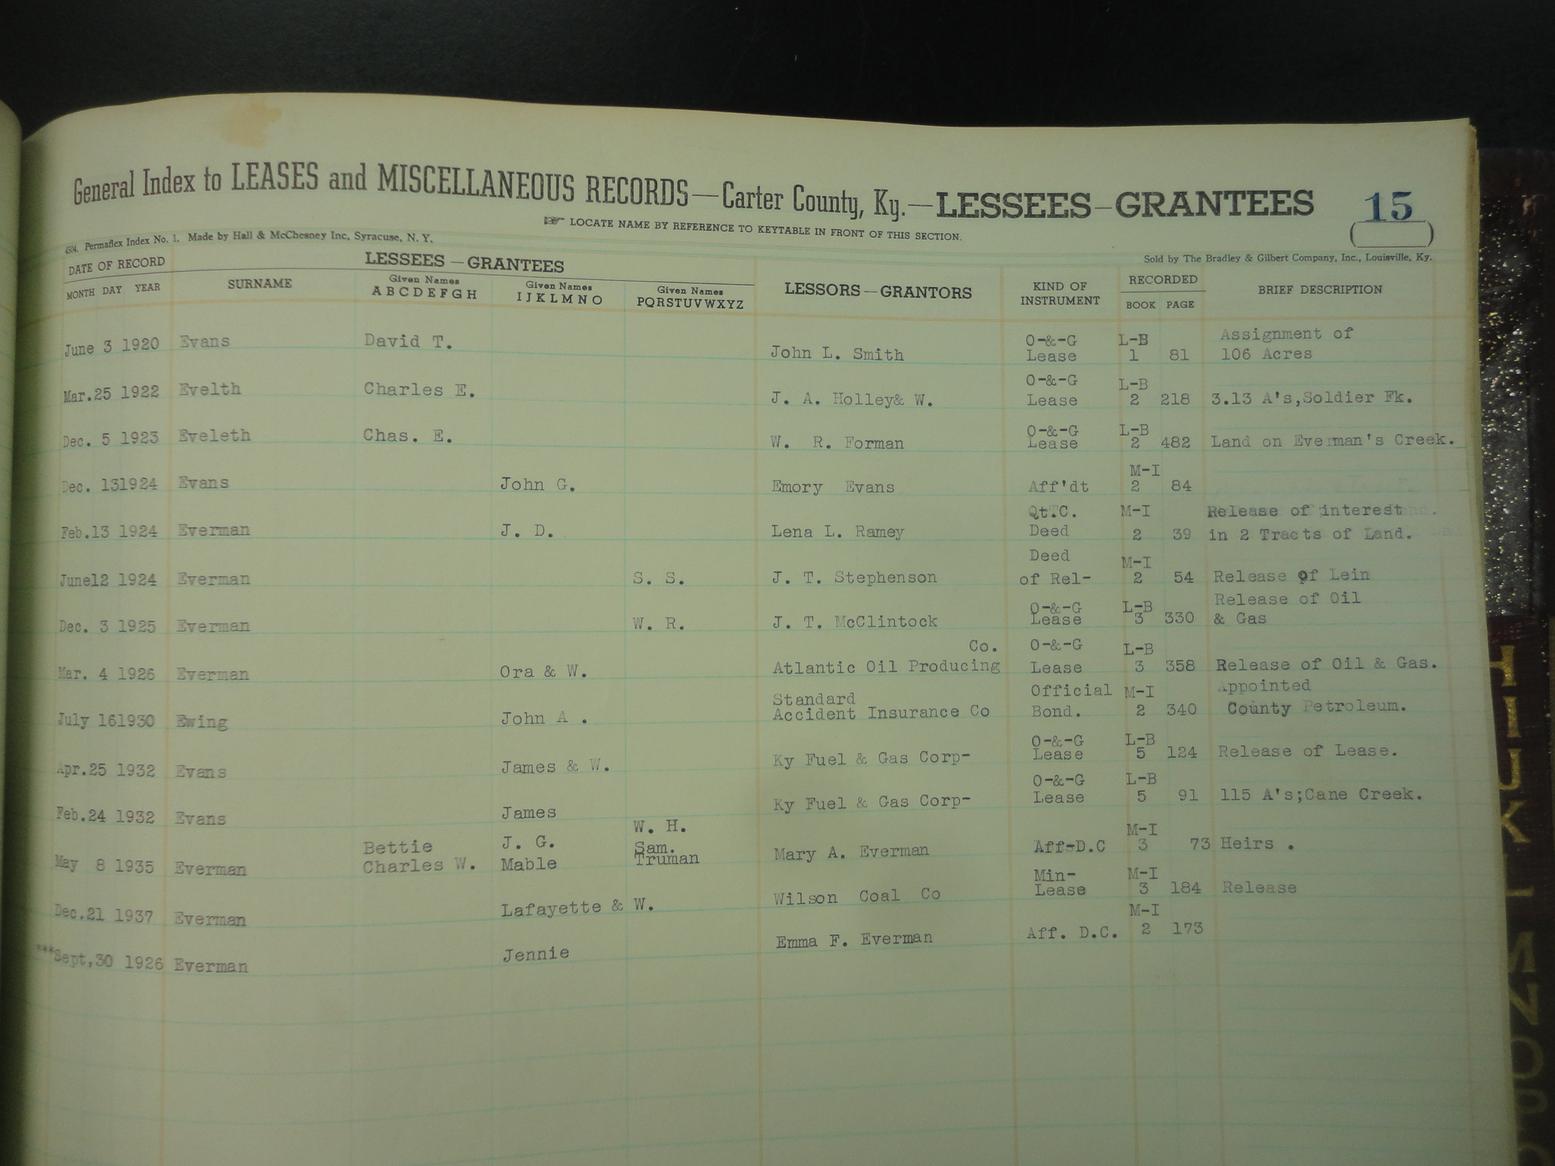 General Index to LEASES and MISCELLANEOUS RECORDS—Carter County, Ky.—LESSEES—GRANTEES 15
☞ LOCATE NAME BY REFERENCE TO KEYTABLE IN FRONT OF THIS SECTION.
Permaflex Index No. 1. Made by Hall & McChesney Inc, Syracuse, N. Y.
Sold by The Bradley & Gilbert Company, Inc., Louisville, Ky.
DATE OF RECORD LESSEES—GRANTEES LESSORS—GRANTORS KIND OF INSTRUMENT RECORDED BRIEF DESCRIPTION
MONTH DAY YEAR SURNAME Given Names ABCDEFGH Given Names IJKLMNO Given Names PQRSTUVWXYZ BOOK PAGE
June 3 1920 Evans David T. John L. Smith O-&-G Lease L-B 1 81 Assignment of 106 Acres
Mar.25 1922 Evelth Charles E. J. A. Holley& W. O-&-G Lease L-B 2 218 3.13 A's,Soldier Fk.
Dec. 5 1923 Eveleth Chas. E. W. R. Forman O-&-G Lease L-B 2 482 Land on Everman's Creek.
Dec. 131924 Evans John G. Emory Evans Aff'dt M-I 2 84
Feb.13 1924 Everman J. D. Lena L. Ramey Qt.C. Deed M-I 2 39 Release of interest in 2 Tracts of Land.
June12 1924 Everman S. S. J. T. Stephenson Deed of Rel- M-I 2 54 Release of Lein
Dec. 3 1925 Everman W. R. J. T. McClintock O-&-G Lease L-B 3 330 Release of Oil & Gas
Mar. 4 1926 Everman Ora & W. Atlantic Oil Producing Co. O-&-G Lease L-B 3 358 Release of Oil & Gas.
July 161930 Ewing John A . Standard Accident Insurance Co Official Bond. M-I 2 340 Appointed County Petroleum.
Apr.25 1932 Evans James & W. Ky Fuel & Gas Corp- O-&-G Lease L-B 5 124 Release of Lease.
Feb.24 1932 Evans James Ky Fuel & Gas Corp- O-&-G Lease L-B 5 91 115 A's;Cane Creek.
May 8 1935 Everman Bettie Charles W. J. G. Mable W. H. Sam. Truman Mary A. Everman Aff-D.C M-I 3 73 Heirs .
Dec.21 1937 Everman Lafayette & W. Wilson Coal Co Min- Lease M-I 3 184 Release
***Sept,30 1926 Everman Jennie Emma F. Everman Aff. D.C. M-I 2 173